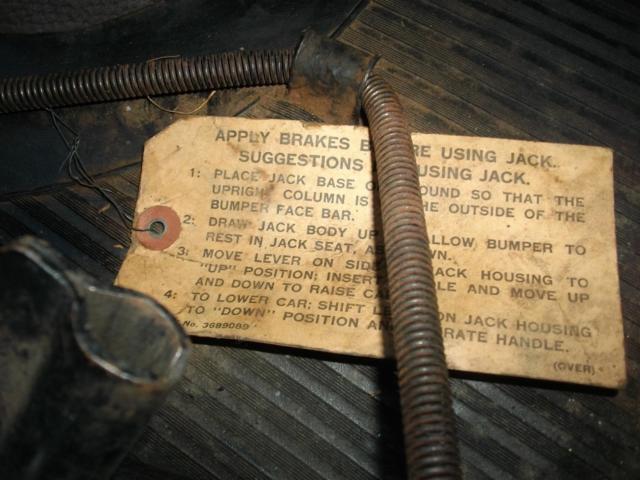 APPLY BRAKES B RE USING JACK.
SUGGESTIONS USING JACK.
1: PLACE JACK BASE O OUND SO THAT THE
UPRIGH COLUMN IS HE OUTSIDE OF THE
BUMPER FACE BAR.
2: DRAW JACK BODY UP ALLOW BUMPER TO
REST IN JACK SEAT, AS WN.
3: MOVE LEVER ON SIDE JACK HOUSING TO
"UP" POSITION; INSERT LE AND MOVE UP
AND DOWN TO RAISE CA
4: TO LOWER CAR; SHIFT LE ON JACK HOUSING
TO "DOWN" POSITION AN RATE HANDLE.
No. 3689089
(OVER)